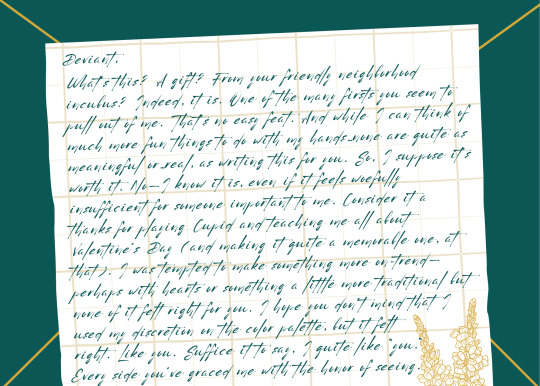 Deviant,
What's this? A gift? From your friendly neighborhood
incubus? Indeed, it is. One of the many firsts you seem to
pull out of me. That's no easy feat. And while I can think of
much more fun things to do with my hands..none are quite as
meaningful or..real, as writing this for you. So, I suppose it's
worth it. No— I know it is, even if it feels woefully
insufficient for someone important to me. Consider it a
thanks for playing Cupid and teaching me all about
Valentine's Day (and making it quite a memorable one, at
that). I was tempted to make something more on-trend—
perhaps with hearts or something a little more traditional but
none of it felt right for you. I hope you don't mind that I
used my discretion on the color palette, but it felt
right. Like you. Suffice it to say, I quite like you.
Every side you've graced me with the honor of seeing.